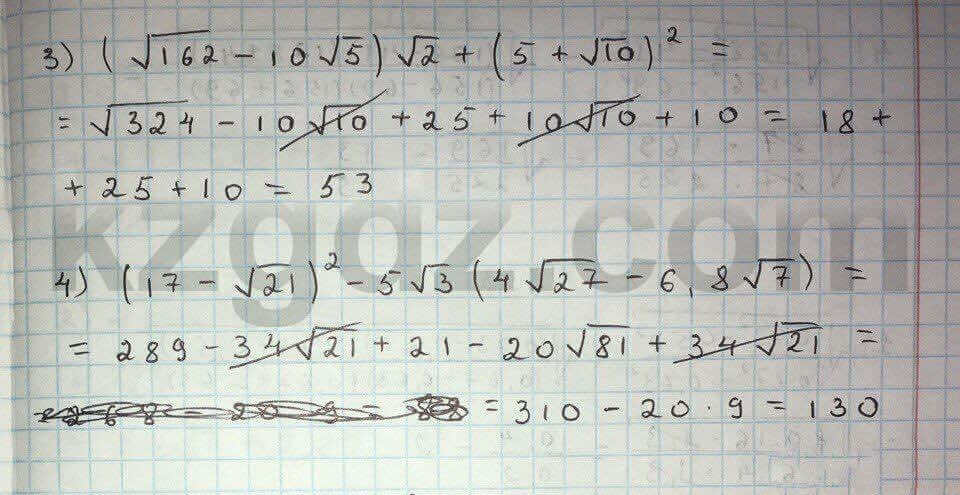 3) (√162 - 10√5)√2 + (5 + √10)² =
= √324 - 10√10 + 25 + 10√10 + 10 = 18 +
+ 25 + 10 = 53
kzgdz.com
4) (17 - √21)² - 5√3 (4√27 - 6,8√7) =
= 289 - 34√21 + 21 - 20√81 + 34√21 =
= 310 - 20 · 9 = 130